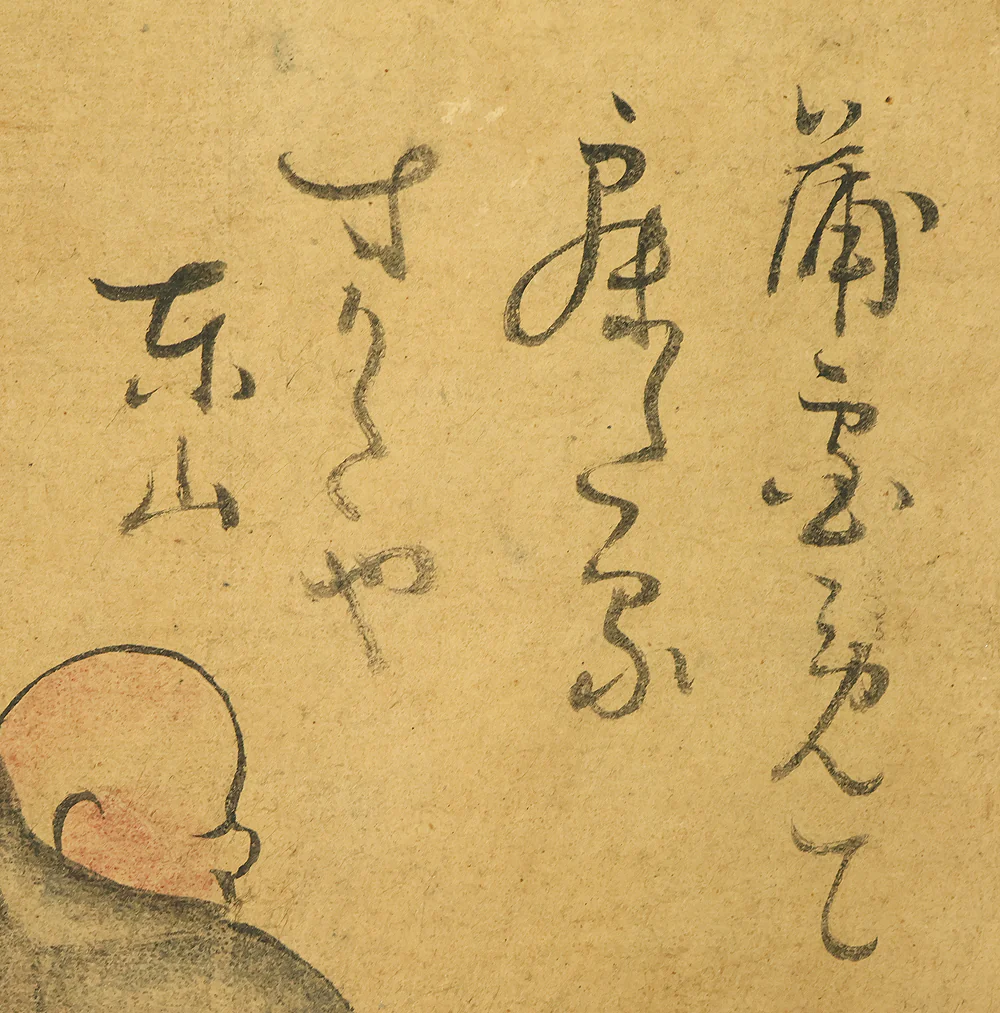 蒲団着て
寐たる
すかたや
東山